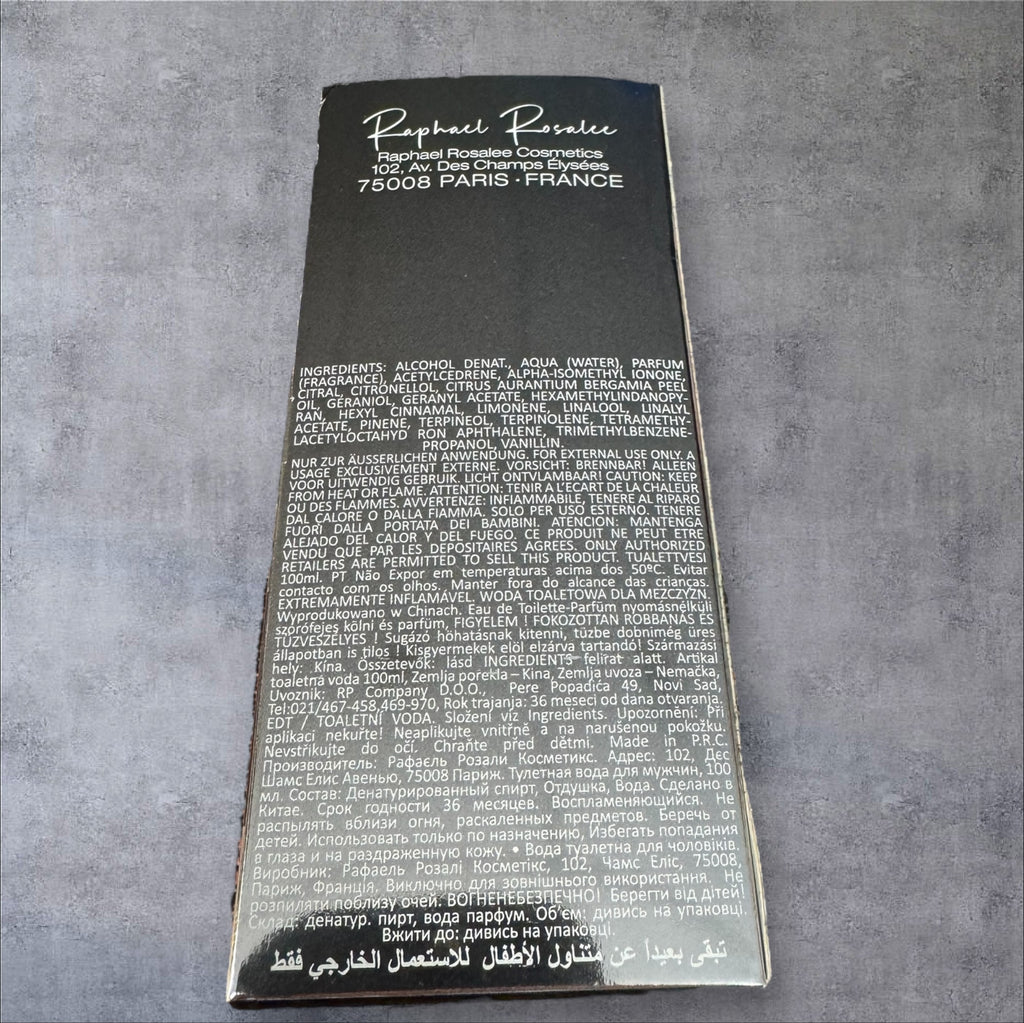 Raphael Rosalee
Raphael Rosalee Cosmetics
102, Av. Des Champs Élysées
75008 PARIS · FRANCE
INGREDIENTS: ALCOHOL DENAT., AQUA (WATER), PARFUM
(FRAGRANCE), ACETYLCEDRENE, ALPHA-ISOMETHYL IONONE,
CITRAL, CITRONELLOL, CITRUS AURANTIUM BERGAMIA PEEL
OIL, GERANIOL, GERANYL ACETATE, HEXAMETHYLINDANOPY-
RAN, HEXYL CINNAMAL, LIMONENE, LINALOOL, LINALYL
ACETATE, PINENE, TERPINEOL, TERPINOLENE, TETRAMETHY-
LACETYLOCTAHYD RON APHTHALENE, TRIMETHYLBENZENE-
PROPANOL, VANILLIN.
NUR ZUR ÄUSSERLICHEN ANWENDUNG. FOR EXTERNAL USE ONLY. A
USAGE EXCLUSIVEMENT EXTERNE. VORSICHT: BRENNBAR! ALLEEN
VOOR UITWENDIG GEBRUIK. LICHT ONTVLAMBAAR! CAUTION: KEEP
FROM HEAT OR FLAME. ATTENTION: TENIR A L'ECART DE LA CHALEUR
OU DES FLAMMES. AVVERTENZE: INFIAMMABILE, TENERE AL RIPARO
DAL CALORE O DALLA FIAMMA. SOLO PER USO ESTERNO. TENERE
FUORI DALLA PORTATA DEI BAMBINI. ATENCION: MANTENGA
ALEJADO DEL CALOR Y DEL FUEGO. CE PRODUIT NE PEUT ETRE
VENDU QUE PAR LES DEPOSITAIRES AGREES. ONLY AUTHORIZED
RETAILERS ARE PERMITTED TO SELL THIS PRODUCT. TUALETTVESI
100ml. PT Não Expor em temperaturas acima dos 50ºC. Evitar
contacto com os olhos. Manter fora do alcance das crianças.
EXTREMAMENTE INFLAMÁVEL. WODA TOALETOWA DLA MEZCZYZN.
Wyprodukowano w Chinach. Eau de Toilette-Parfüm nyomásnélküli
szórófejes kölni és parfüm, FIGYELEM ! FOKOZOTTAN ROBBANÁS ÉS
TÜZVESZÉLYES ! Sugázó hőhatásnak kitenni, tüzbe dobnimég üres
állapotban is tilos ! Kisgyermekek elöl elzárva tartandó! Származási
hely: Kína. Összetevők: lásd INGREDIENTS felirat alatt. Artikal
toaletna voda 100ml, Zemlja porekla – Kina, Zemlja uvoza – Nemačka,
Uvoznik: RP Company D.O.O., Pere Popadića 49, Novi Sad,
Tel:021/467-458,469-970, Rok trajanja: 36 meseci od dana otvaranja.
EDT / TOALETNÍ VODA. Složení viz Ingredients. Upozornění: Při
aplikaci nekuřte! Neaplikujte vnitřně a na narušenou pokožku.
Nevstřikujte do očí. Chraňte před dětmi. Made in P.R.C.
Производитель: Рафаєль Розали Косметикс. Адрес: 102, Дес
Шамс Елис Авенью, 75008 Париж. Тулетная вода для мужчин, 100
мл. Состав: Денатурированный спирт, Отдушка, Вода. Сделано в
Китае. Срок годности 36 месяцев. Воспламеняющийся. Не
распылять вблизи огня, раскаленных предметов. Беречь от
детей. Использовать только по назначению, Избегать попадания
в глаза и на раздраженную кожу. • Вода туалетна для чоловіків.
Виробник: Рафаель Розалі Косметікс, 102, Чамс Еліс, 75008,
Париж, Франція, Виключно для зовнішнього використання. Не
розпиляти поблизу очей. ВОГНЕНЕБЕЗПЕЧНО! Берегти від дітей!
Склад: денатур. пирт, вода парфум. Об'єм: дивись на упаковці.
Вжити до: дивись на упаковці.
تبقى بعيداً عن متناول الأطفال للاستعمال الخارجي فقط